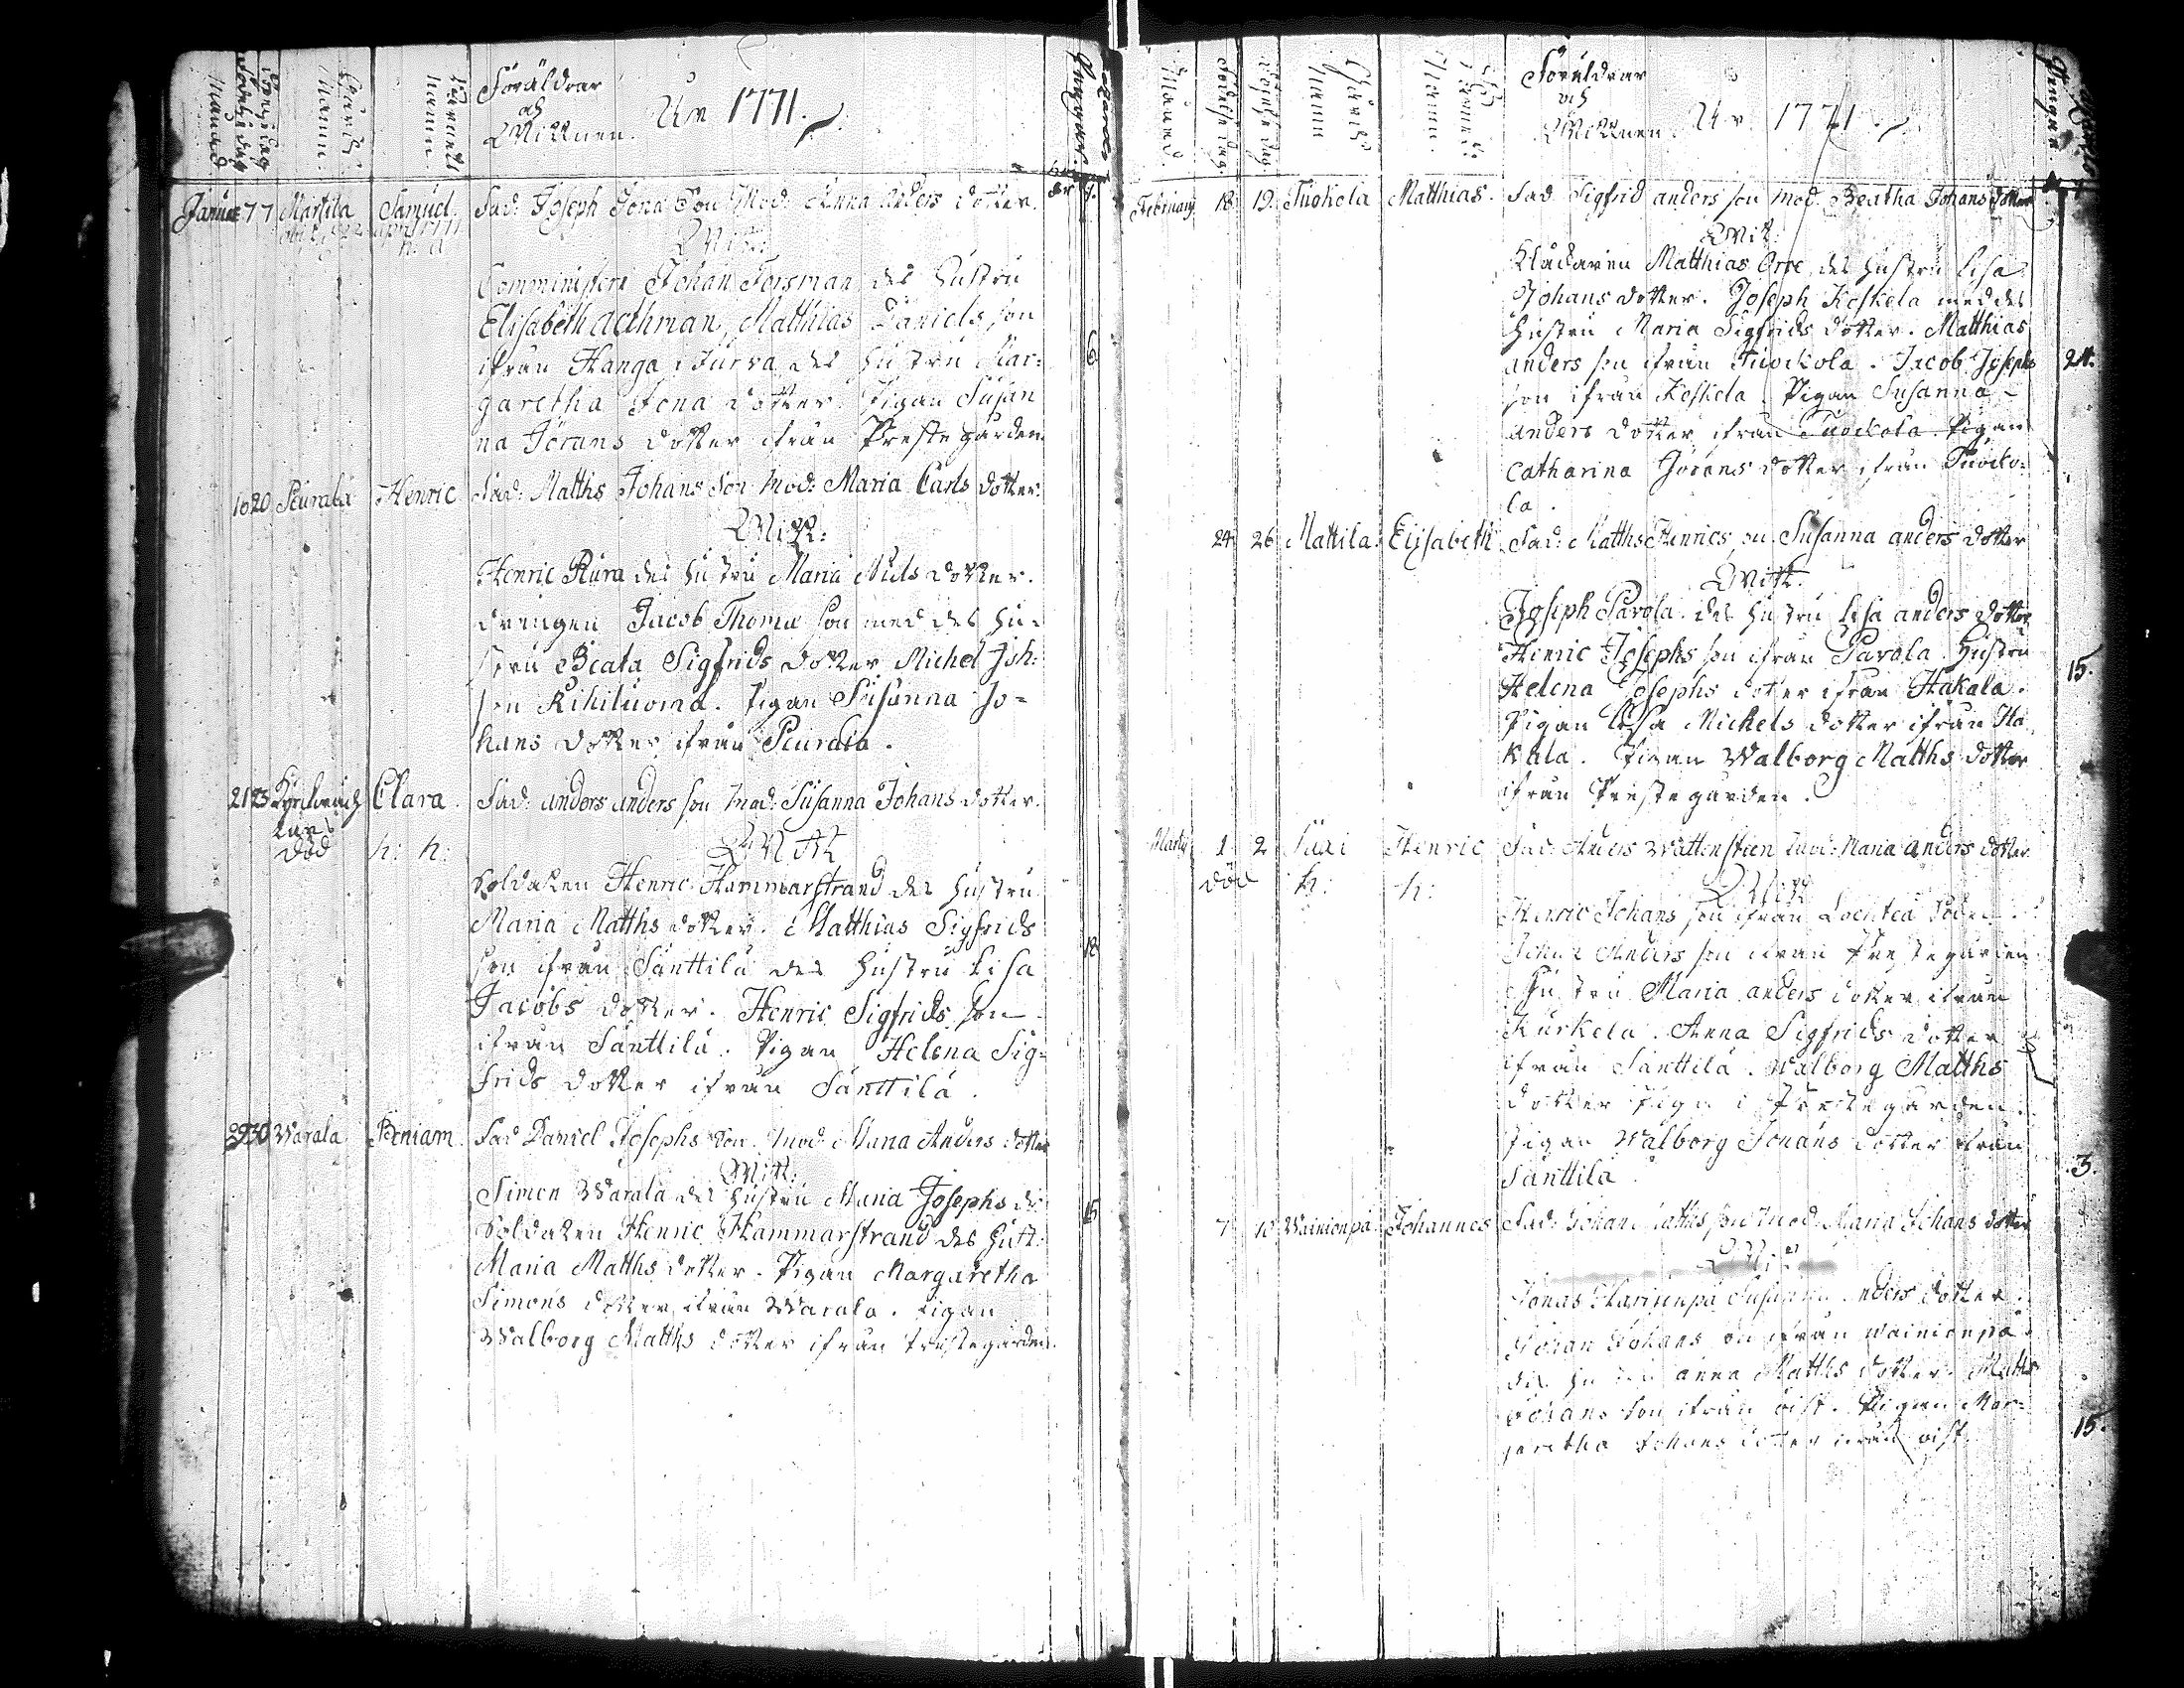 Månad
Födelse dag
Christnings dag
Gårds Namn.
Barnets Namn.
Föräldrar
och
Wittnen.
År 1771.
Januar 7 7 Martila Samuel. Fad: Joseph Jona Son Mod: Anna Anders dotter.
Witt:
Comminister Johan Forsman des hustru
Elisabeth Achman, Matthias Daniels son
ifrån Hanga i Jurva des hustru Mar:
garetha Jona dotter. Pigan Susan
na Jörans dotter ifrån Prestegården
6
10 20 Peurala Henric Fad: Matths Johans Son Mod: Maria Carls dotter.
Witt:
Henric Rura des hustru Maria Nils dotter.
drengen Jacob Thomæ son med des hu-
stru Beata Sigfrids dotter Michel Joh:
son Kihiluoma. Pigan Susanna Jo-
hans dotter ifrån Peurala.
21 23 Clara. Fad: anders anders son Mod: Susanna Johans dotter.
död h: h:
Witt
Soldaten Henric Hammarstrand des hustru
Maria Matths dotter. Matthias Sigfrids
son ifrån Santtila des hustru Lisa
Jacobs dotter. Henric Sigfrids son
ifrån Santtila. Pigan Helena Sig-
frids dotter ifrån Santtila.
18
29 30 Warala Beniam. Fad Daniel Josephs Son. Mod: Maria Anders dotter
Witt:
Simon Warala des hustru Maria Josephs d:
Soldaten Henric Hammarstrand des hust:
Maria Matths dotter. Pigan Margaretha
Simons dotter ifrån Warala. Pigan
Walborg Matths dotter ifrån Prestegården.
15
Månad.
Födelse dag.
Gårds Namn
Föräldrar
och
Wittnen.
År 1771.
February 18 19. Tuokola Matthias. Fad Sigfrid anders son mod. Beatha Johans dotter
Witt:
Matthias Orre des hustru Lisa
Johans dotter. Joseph Koskela med des
hustru Maria Sigfrids dotter. Matthias
anders son ifrån Tuockola. Jacob Josephs
son ifrån Koskela. Pigan Susanna
anders dotter ifrån Tuockola. Pigan
Catharina Jörans dotter ifrån Tuocko:
la.
24.
24. 26 Mattila. Elisabeth. Fad: Matths Henrics son Susanna anders dotter
Witt.
Joseph Parola. des hustru Lisa anders dotter
Henric Josephs son ifrån Parola. hustru
Helena Josephs dotter ifrån Hakala.
Pigan Lisa Michels dotter ifrån Ha
kala. Pigan Walborg Matths dotter
ifrån Prestegården.
15.
Martij 1. 2 Luxi Henric Fad: Anders Wattenstien mod: Maria anders dotter
död h: h:
Witt
Henric Johans son ifrån
Anders son ifrån Prestegården
Hustru Maria anders dotter ifrån
Kurkela. Anna Sigfrids dotter
ifrån Santtila. Walborg Matths
dotter Piga i Prestegården.
Pigan Walborg Johans dotter ifrån
Santtila.
3.
7 10 Wainionpä. Johannes Fad: Johan Matths son mod: Maria Johans dotter
Witt
Jonas Harjunpä Susanna anders dotter.
Johan Johans son ifrån Wainionpä.
des hustru anna Matths dotter. Matths
Johans son ifrån Pigan Mar:
garetha Johans dotter ifrån
15.